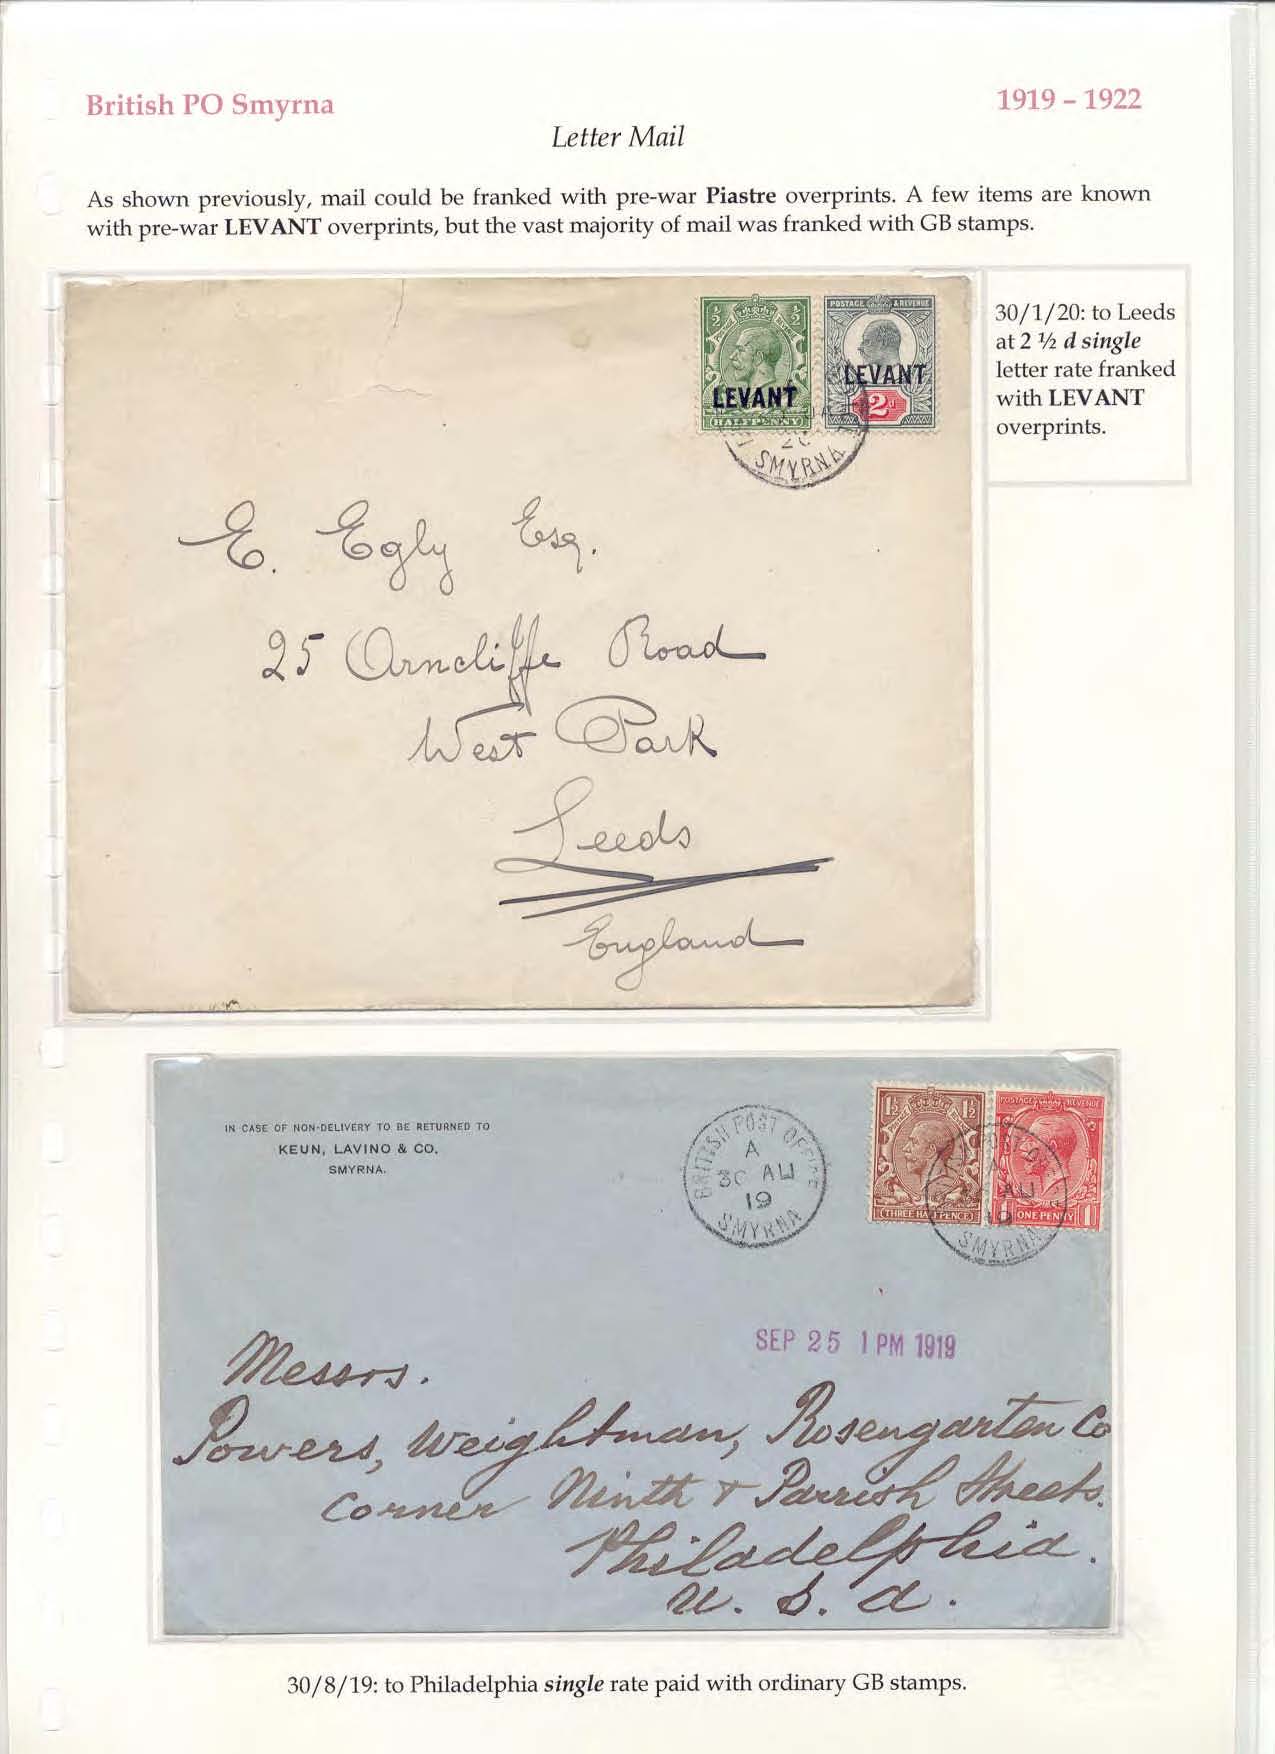 British PO Smyrna
1919 – 1922
Letter Mail
As shown previously, mail could be franked with pre-war Piastre overprints. A few items are known
with pre-war LEVANT overprints, but the vast majority of mail was franked with GB stamps.
½ ½
LEVANT
HALFPENNY
POSTAGE & REVENUE
LEVANT
2d
SMYRNA
30/1/20: to Leeds
at 2 ½ d single
letter rate franked
with LEVANT
overprints.
E. Egly Esq.
25 Arncliffe Road
West Park
Leeds
England
IN CASE OF NON-DELIVERY TO BE RETURNED TO
KEUN, LAVINO & CO.
SMYRNA.
BRITISH POST OFFICE
A
30 AU
19
SMYRNA
1½ 1½
THREE HALFPENCE
POSTAGE REVENUE
1 ONE PENNY 1
AU
19
SMYRNA
SEP 25 1 PM 1919
Messrs.
Powers, Weightman, Rosengarten Co
Corner Ninth & Parrish Streets.
Philadelphia.
U. S. A.
30/8/19: to Philadelphia single rate paid with ordinary GB stamps.